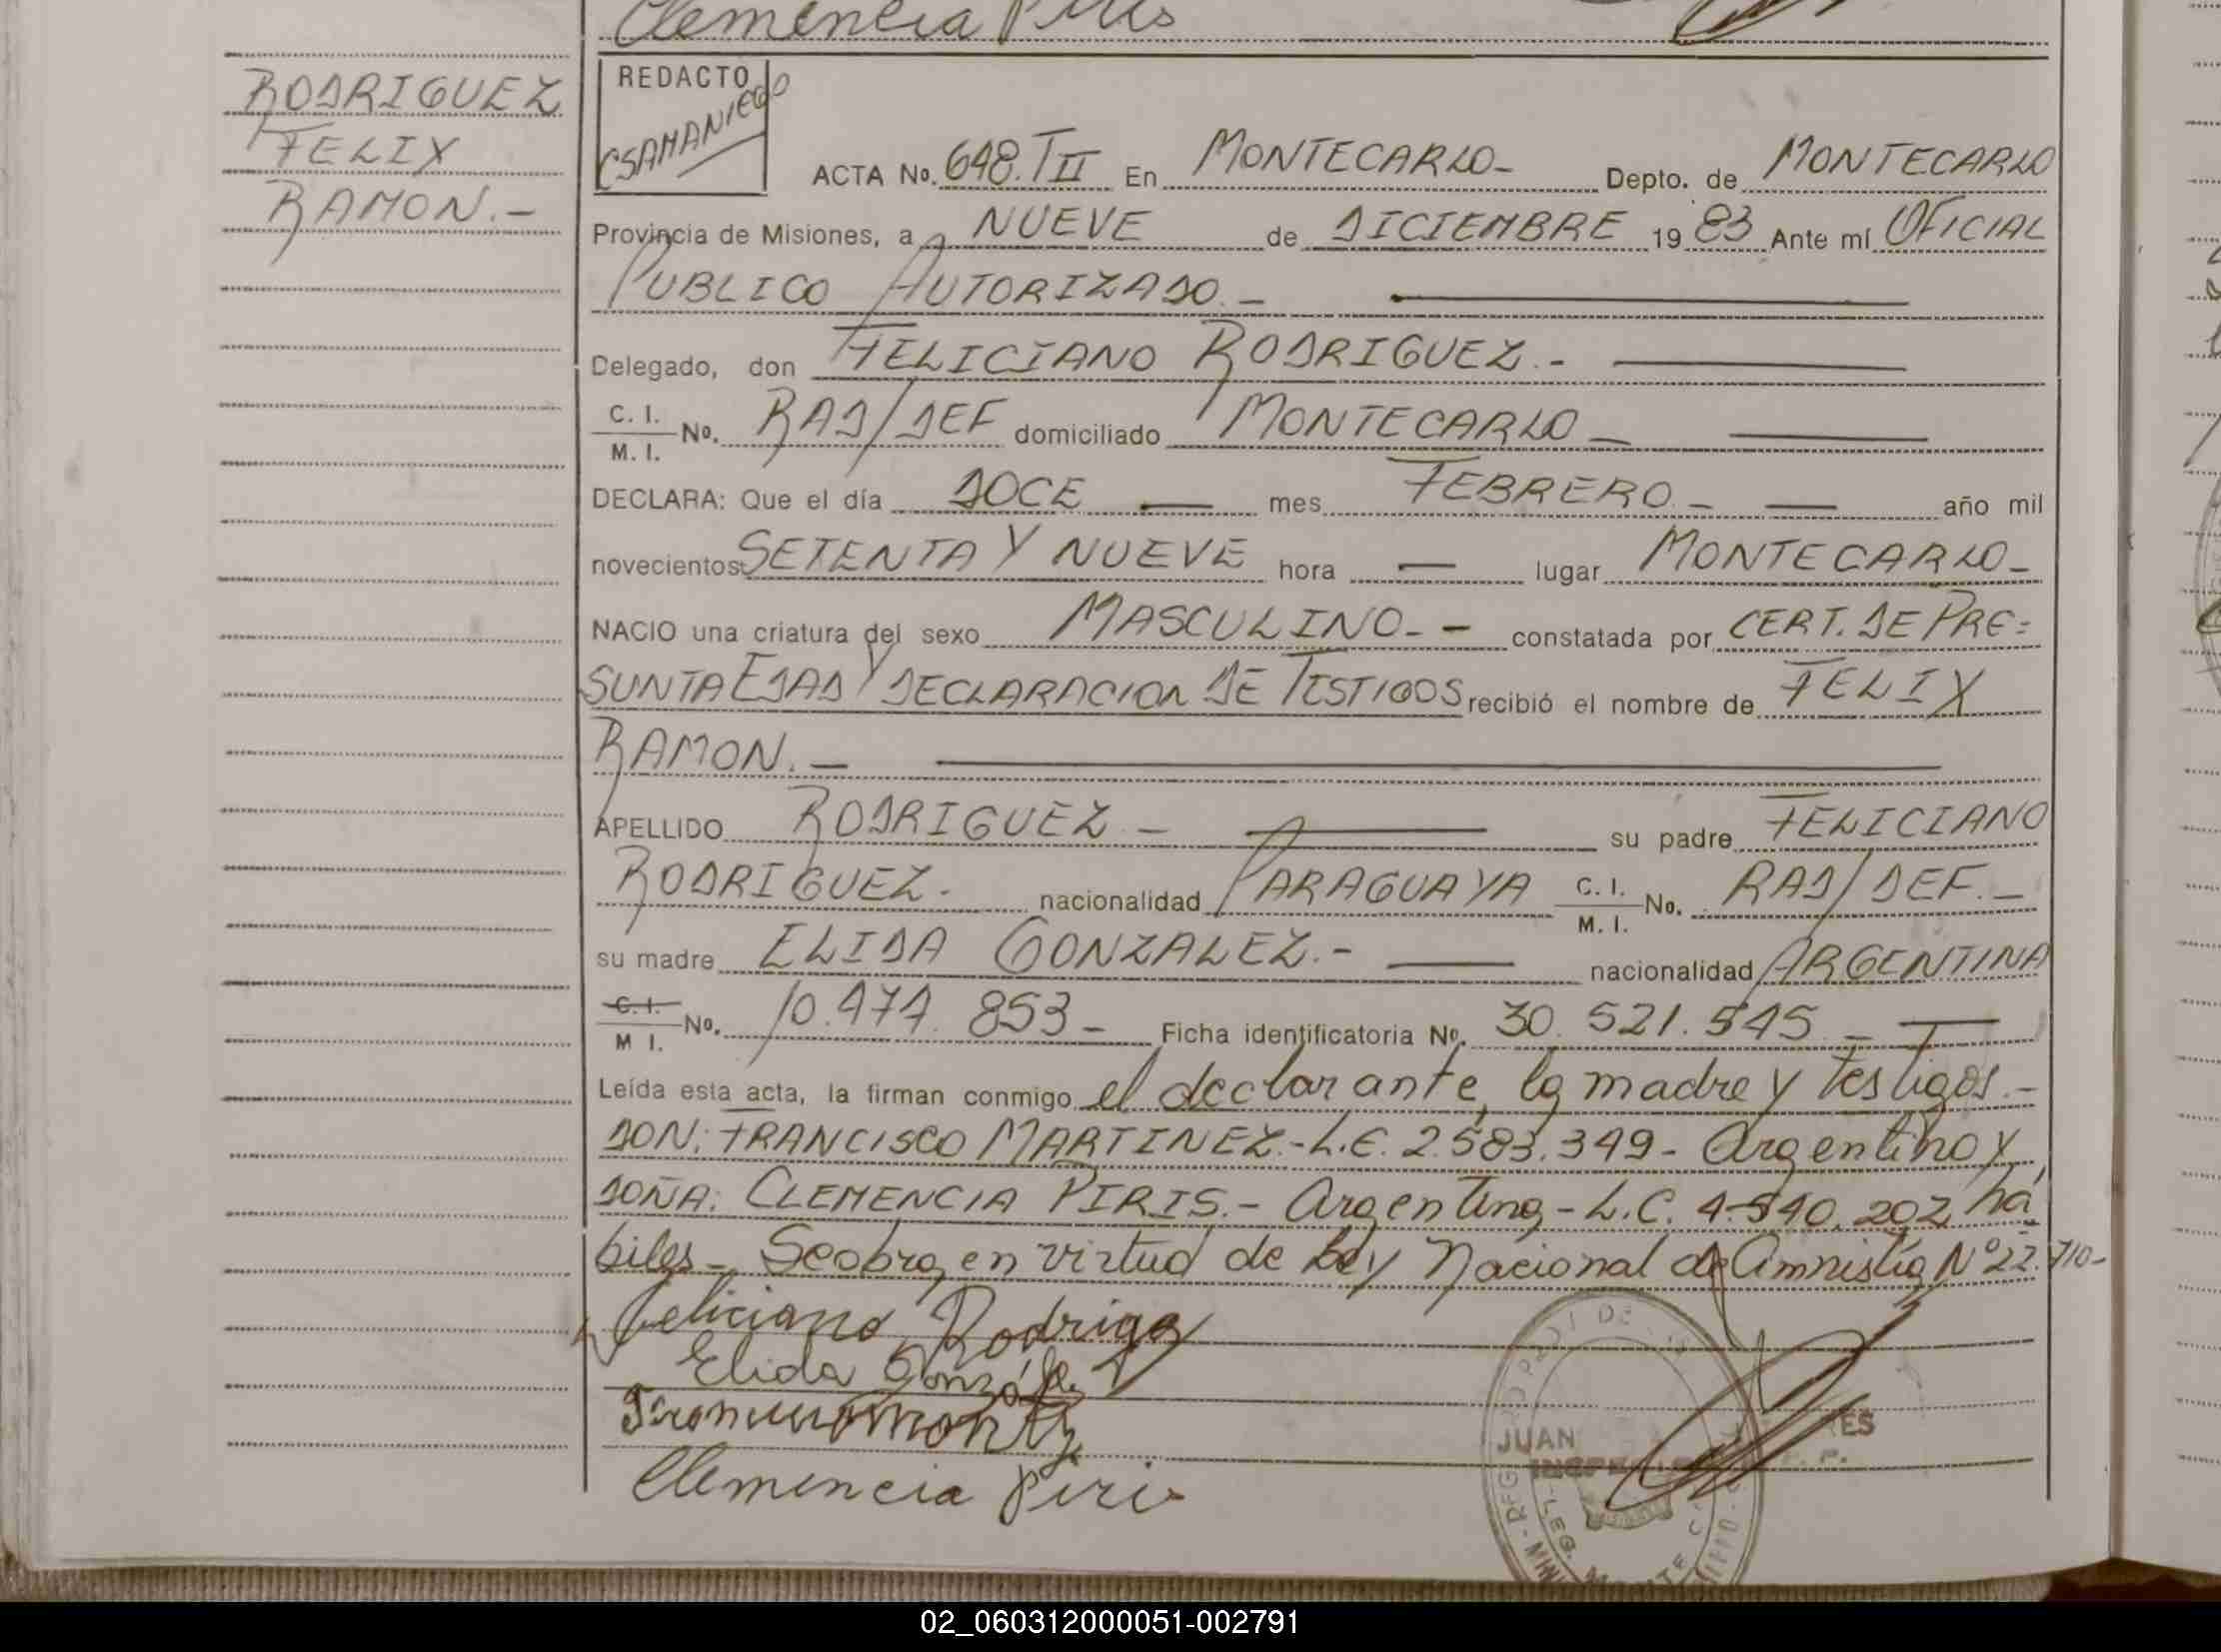 Clemencia Piris
RODRIGUEZ
FELIX
RAMON.-
REDACTO
CSAMANIEGO
ACTA No. 648.TII En MONTECARLO- Depto. de MONTECARLO
Provincia de Misiones, a NUEVE de DICIEMBRE 1983 Ante mí OFICIAL
PUBLICO AUTORIZADO.-
Delegado, don FELICIANO RODRIGUEZ.-
C. I.
M. I. No. RAD/DEF domiciliado MONTECARLO-
DECLARA: Que el día DOCE — mes FEBRERO.- — año mil
novecientos SETENTA Y NUEVE hora — lugar MONTECARLO-
NACIO una criatura del sexo MASCULINO.- - constatada por CERT. DE PRE=
SUNTA EDAD Y DECLARACION DE TESTIGOS recibió el nombre de FELIX
RAMON.-
APELLIDO RODRIGUEZ - su padre FELICIANO
RODRIGUEZ.- nacionalidad PARAGUAYA C. I. M. I. No. RAD/DEF.-
su madre ELIDA GONZALEZ.- nacionalidad ARGENTINA
C. I.
M I. No. 10.474.853- Ficha identificatoria No. 30.521.545 -
Leída esta acta, la firman conmigo el declarante, la madre y Testigos.-
DON: FRANCISCO MARTINEZ.- L.E. 2.583.349- Argentino y
DOÑA: CLEMENCIA PIRIS.- Argentina- L.C. 4.540.202 há
biles- Se obra en virtud de Ley Nacional de Amnistía Nº 22.710-
Feliciano Rodrigez
Elida González
Clemencia Piris
JUAN
ES
02_060312000051-002791